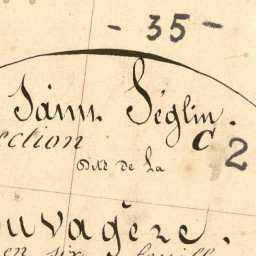 - 35 -
Saint Séglin.
ection C 2
Dite de La
ouvagère.
en six feuill